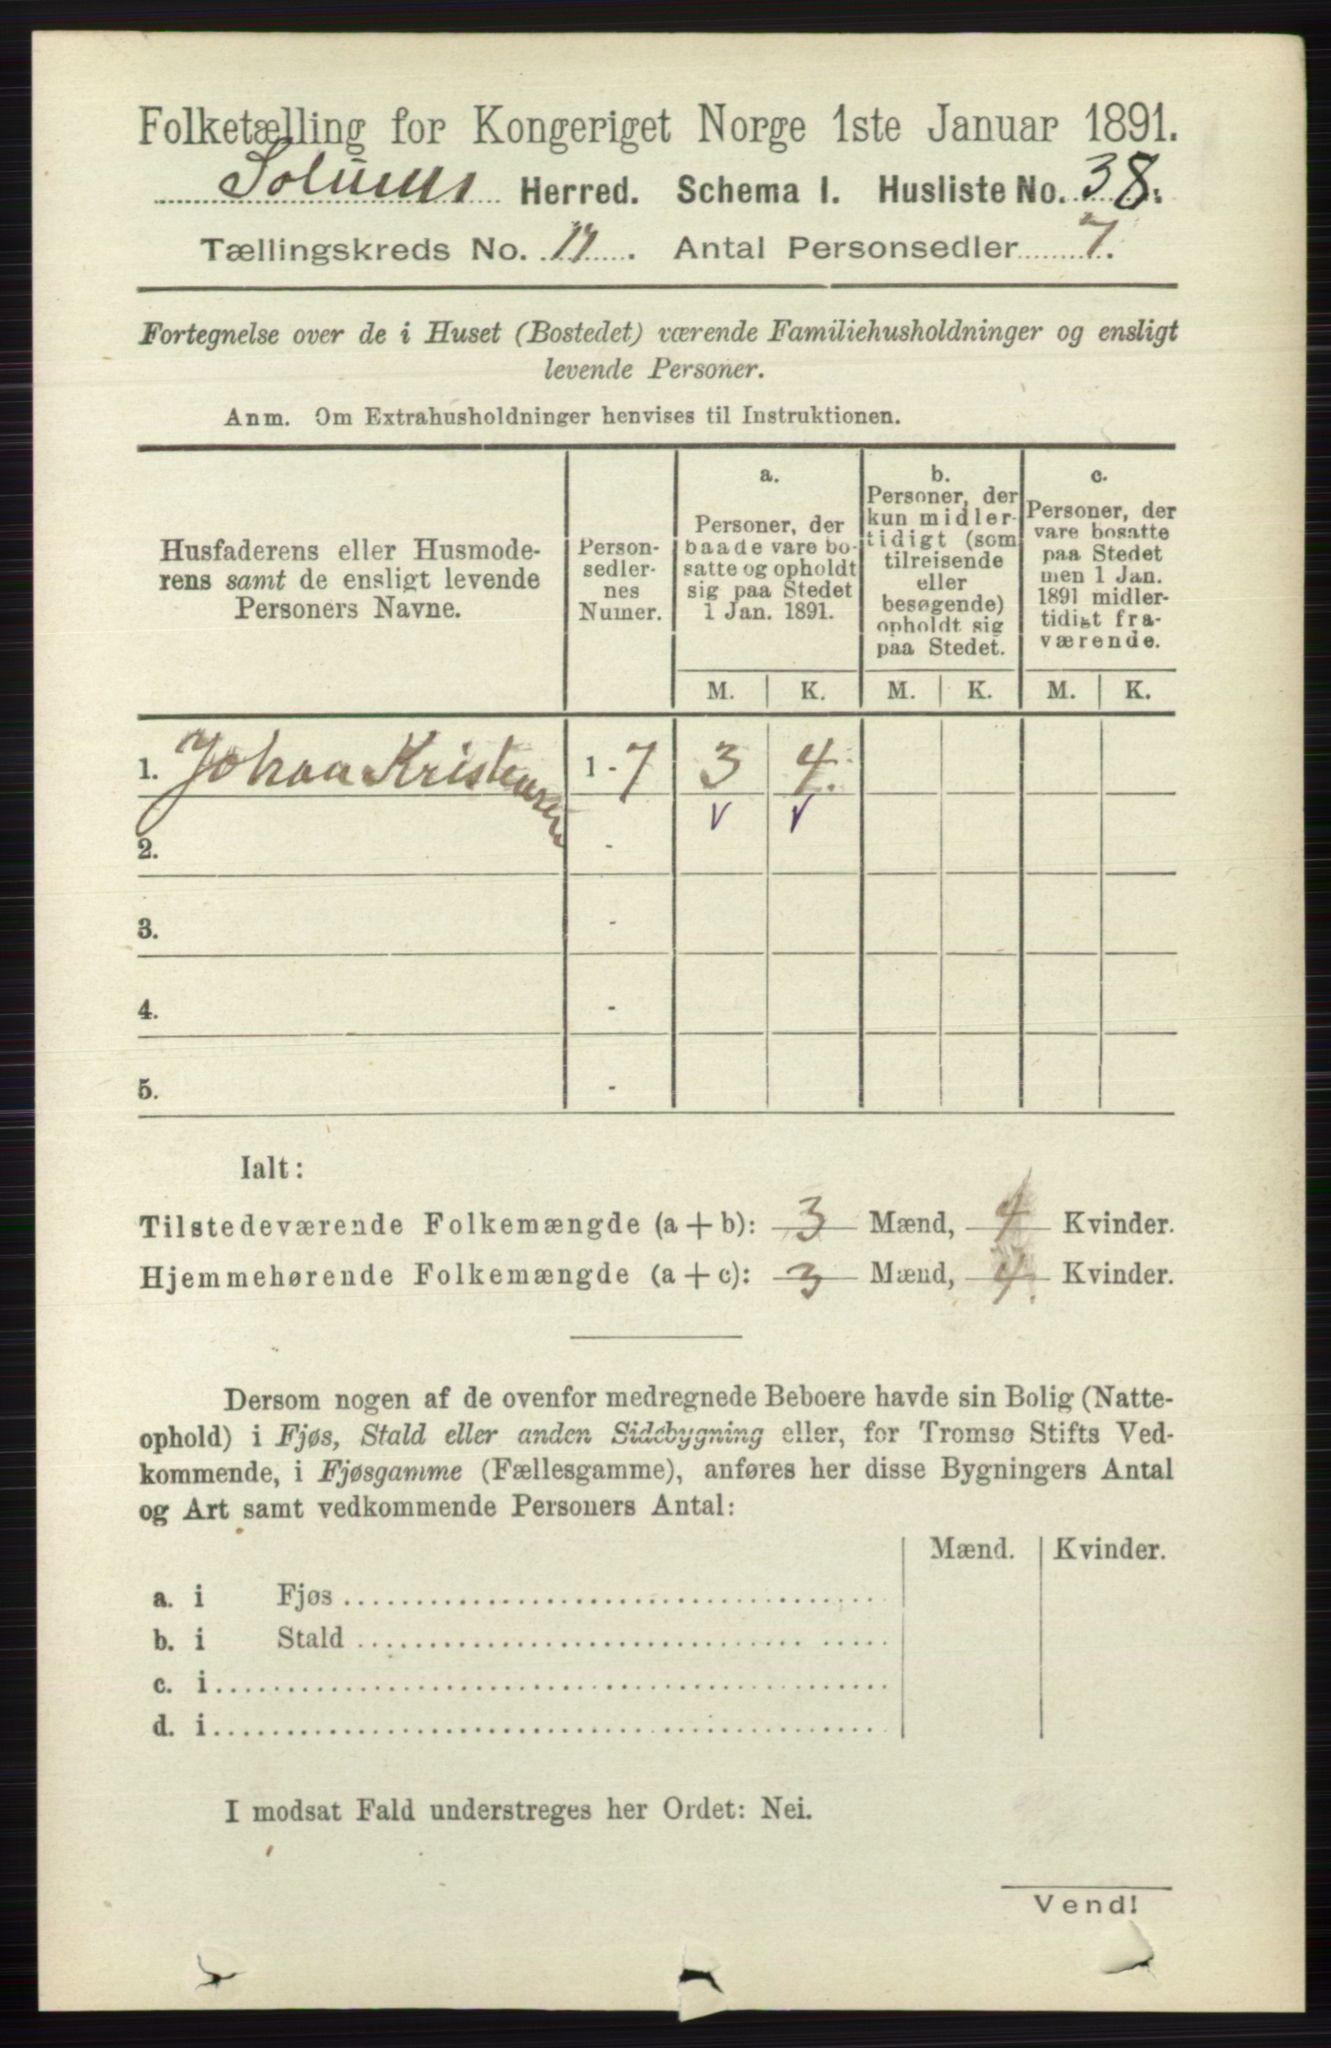 Folketælling for Kongeriget Norge 1ste Januar 1891.
Solums Herred. Schema I. Husliste No. 38.
Tællingskreds No. Antal Personsedler 7.
Fortegnelse over de i Huset (Bostedet) værende Familiehusholdninger og ensligt
levende Personer.
Anm. Om Extrahusholdninger henvises til Instruktionen.
Husfaderens eller Husmode-
rens samt de ensligt levende
Personers Navne.
Person-
sedler-
nes
Numer.
a.
Personer, der
baade vare bo-
satte og opholdt
sig paa Stedet
1 Jan. 1891.
b.
Personer, der
kun midler-
tidigt (som
tilreisende
eller
besøgende)
opholdt sig
paa Stedet.
c.
Personer, der
vare bosatte
paa Stedet
men 1 Jan.
1891 midler-
tidigt fra-
værende.
M. K. M. K. M. K.
1. Johan Kristensen 1 - 7 3 4.
2. -
3. -
4. -
5. -
Ialt:
Tilstedeværende Folkemængde (a + b): 3 Mænd, 4 Kvinder.
Hjemmehørende Folkemængde (a + c): 3 Mænd, 4 Kvinder.
Dersom nogen af de ovenfor medregnede Beboere havde sin Bolig (Natte-
ophold) i Fjøs, Stald eller anden Sidebygning eller, for Tromsø Stifts Ved-
kommende, i Fjøsgamme (Fællesgamme), anføres her disse Bygningers Antal
og Art samt vedkommende Personers Antal:
Mænd. Kvinder.
a. i Fjøs
b. i Stald
c. i
d. i
I modsat Fald understreges her Ordet: Nei.
Vend!